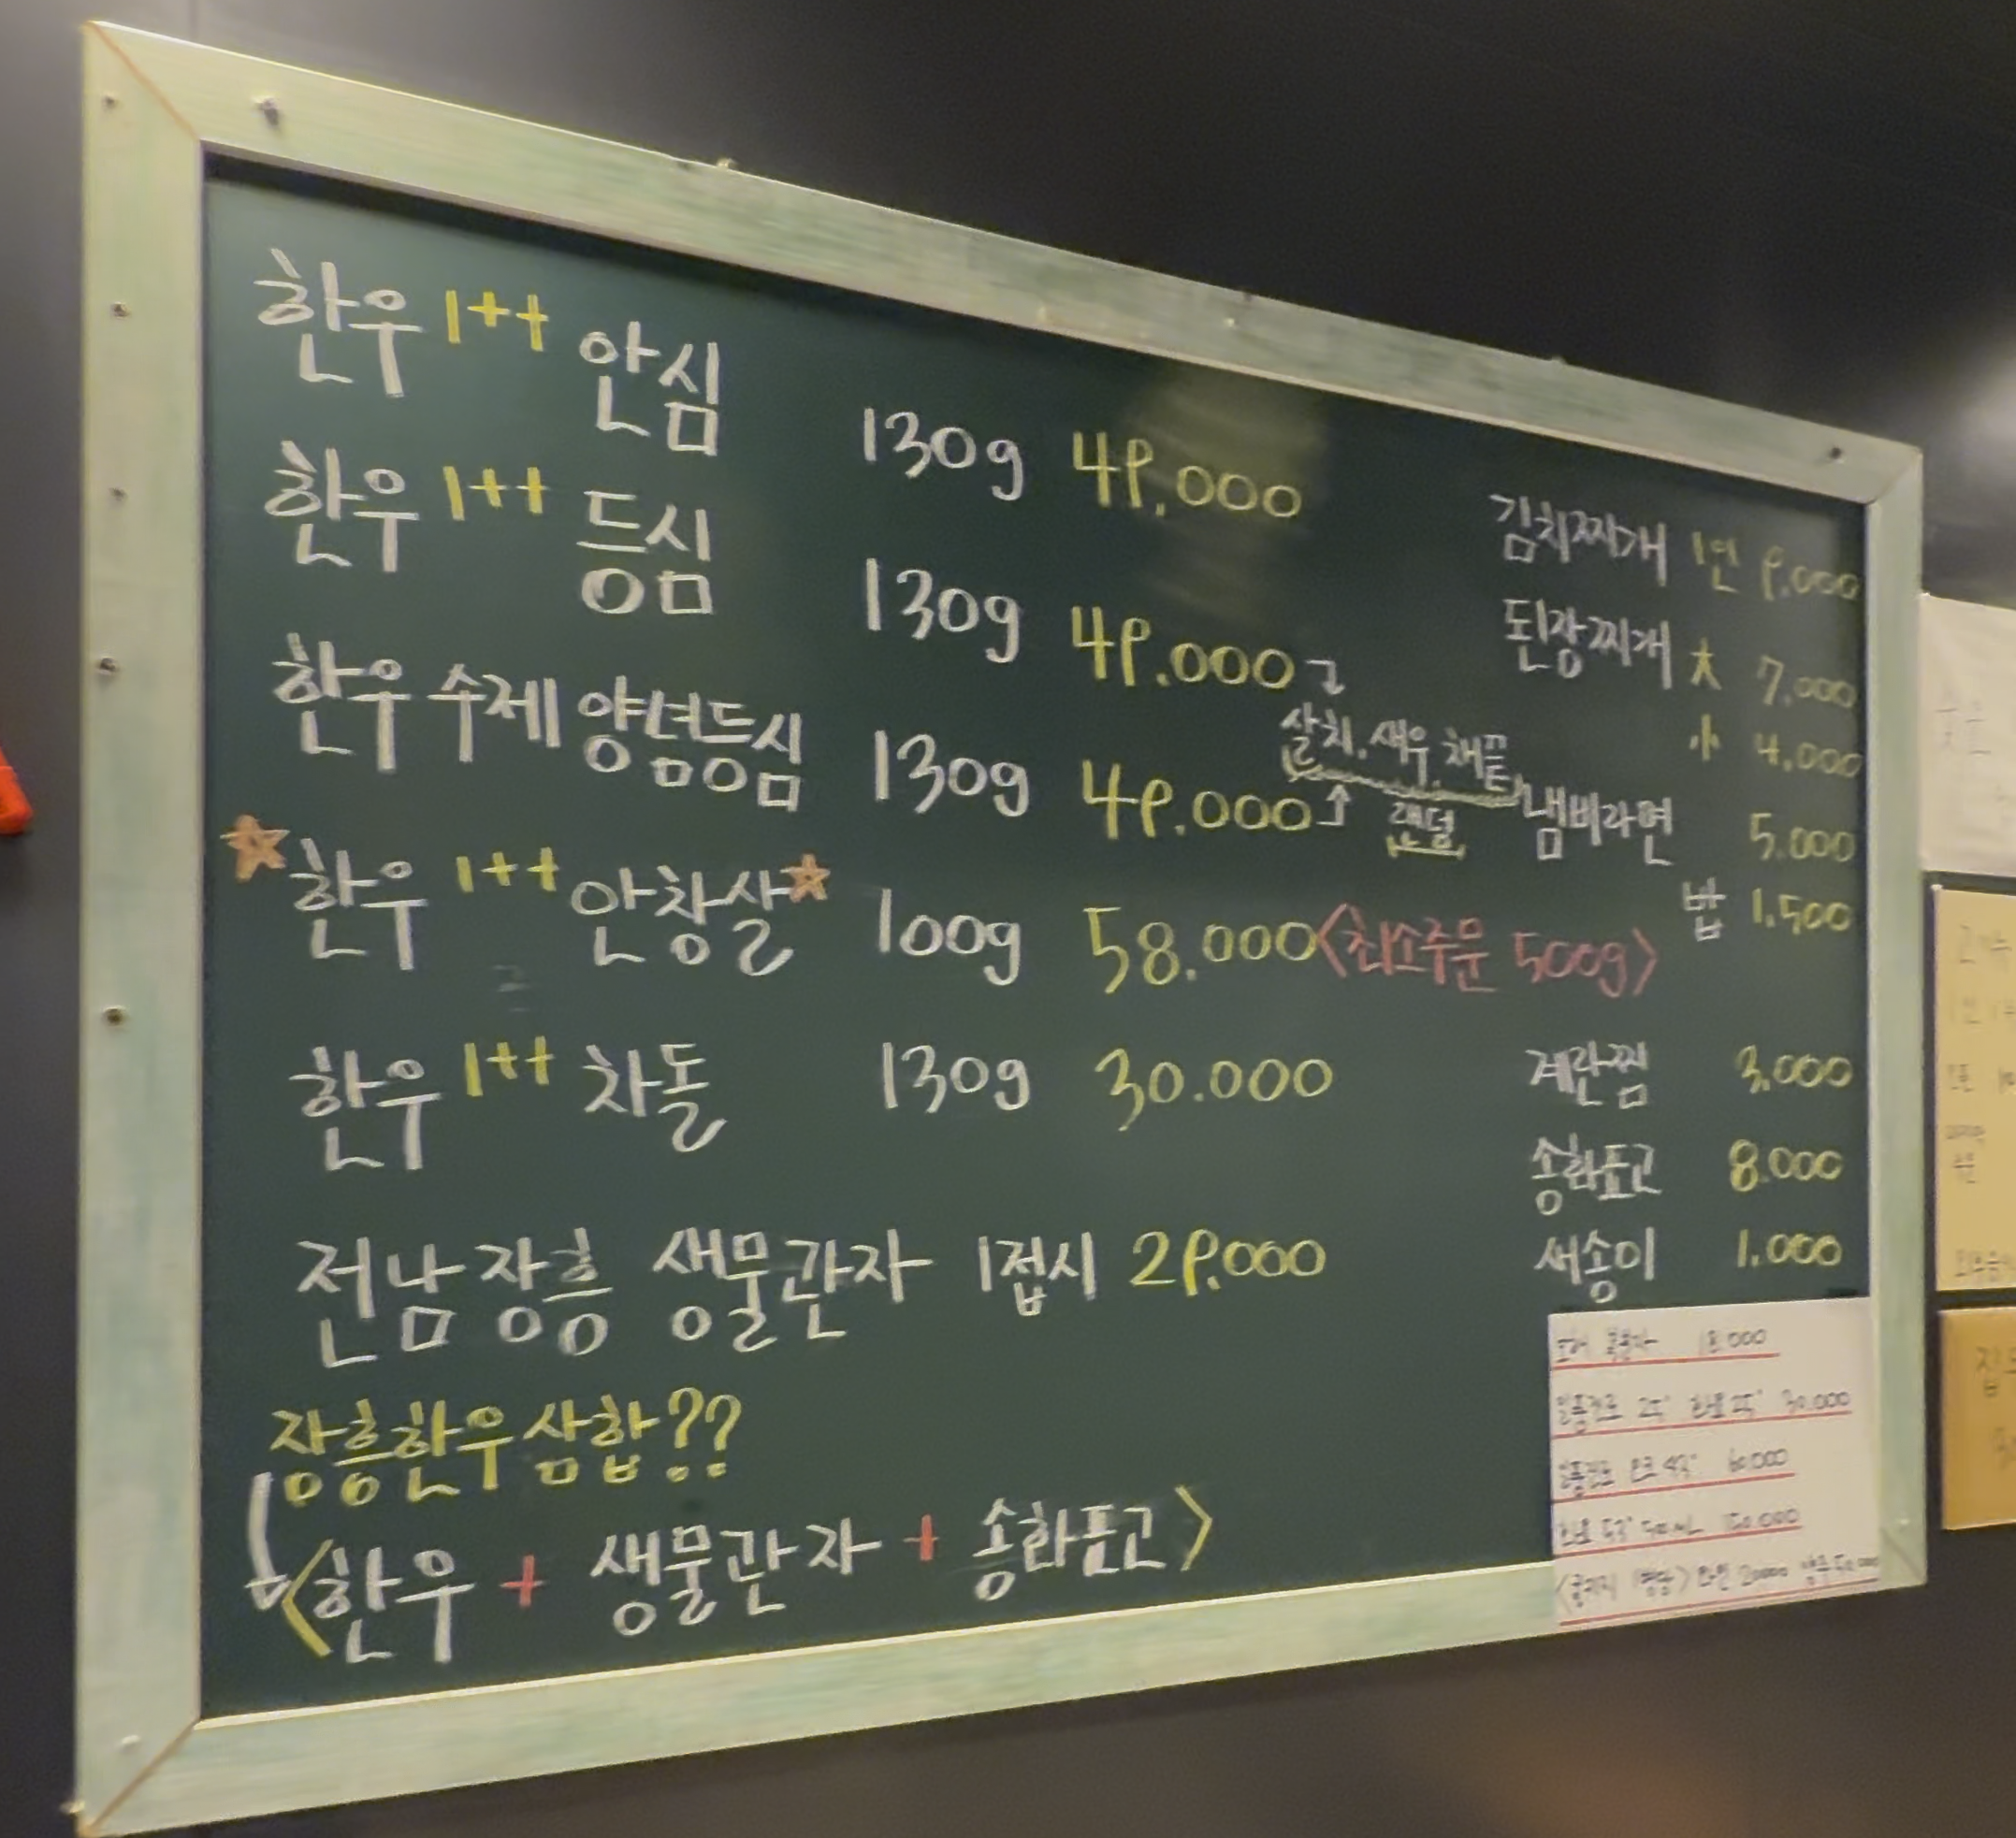 한우 1++ 안심 130g 49,000
한우 1++ 등심 130g 49.000
한우 수제 양념등심 130g 49.000
살치, 새우, 채끝
랜덤
한우 1++ 안창살 100g 58.000 <최소주문 500g>
한우 1++ 차돌 130g 30.000
전남 장흥 생물관자 1접시 29.000
장흥한우삼합??
<한우 + 생물관자 + 송화표고>
김치찌개 1인 9.000
된장찌개 大 7,000
小 4,000
냄비라면 5.000
밥 1.500
계란찜 3.000
송화표고 8.000
새송이 1.000
18.000
30.000
60.000
150.000